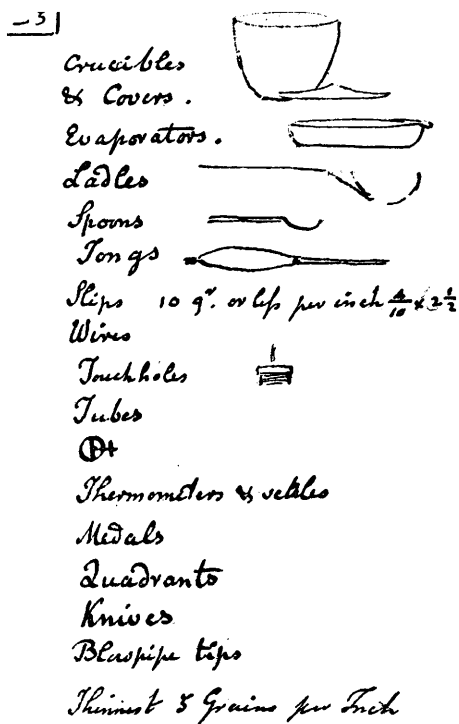 – 3
Crucibles
& Covers.
Evaporators.
Ladles
Spoons
Tongs
Slips 10 gr. or less per inch 4/10 x 2 1/2
Wires
Touchholes
Tubes
Thermometers & scales
Medals
Quadrants
Knives
Blowpipe tips
Thinnest 5 Grains per Inch